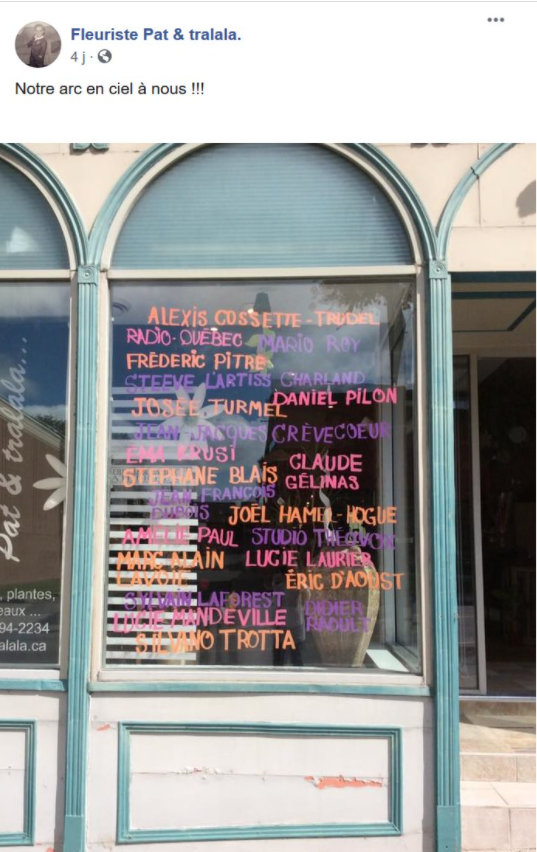 Fleuriste Pat & tralala.
4 j
Notre arc en ciel à nous !!!
ALEXIS COSSETTE-TRUDEL
RADIO-QUÉBEC MARIO ROY
FRÉDERIC PITRE
STEEVE L'ARTISS CHARLAND
DANIEL PILON
JOSÉE TURMEL
JEAN-JACQUES CRÈVECOEUR
EMA KRUSI
CLAUDE
GÉLINAS
STÉPHANE BLAIS
JEAN FRANÇOIS
DUBOIS
JOËL HAMEL-HOGUE
AMÉLIE PAUL STUDIO
MARC ALAIN
LAVOIE
LUCIE LAURIER
ÉRIC D'AOUST
SYLVAIN LAFOREST
DIDIER
RAOULT
LUCIE MANDEVILLE
SILVANO TROTTA
Pat & tralala...
, plantes,
eaux ...
94-2234
alala.ca